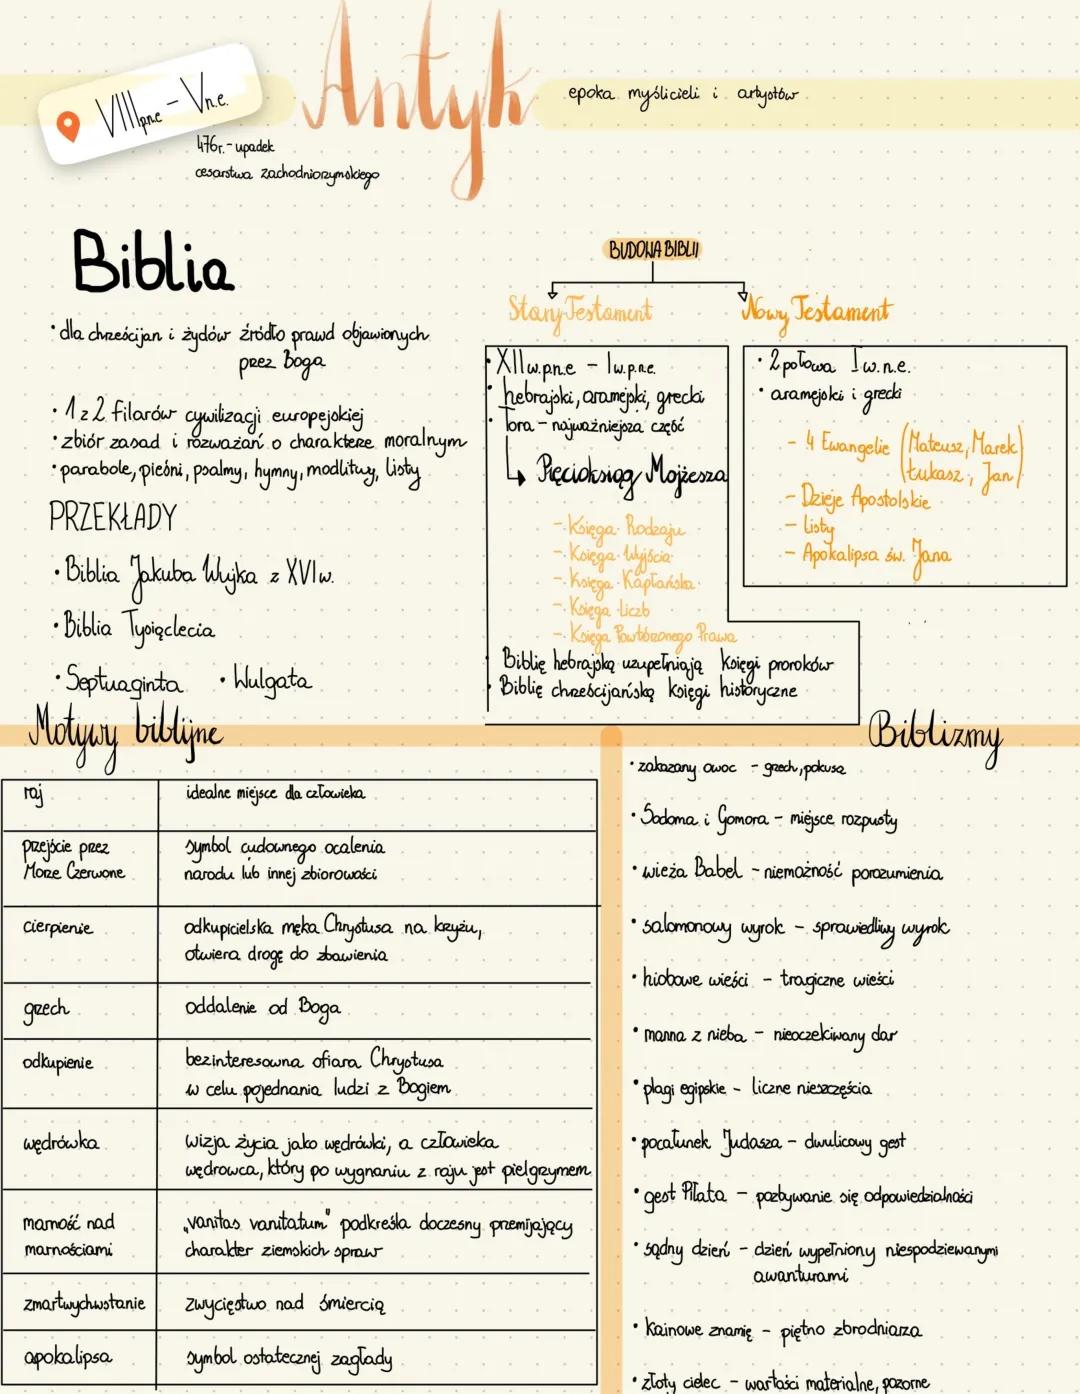 Antyk
VIIIp.n.e - Vn.e.
epoka myślicieli i artystów
476r. - upadek
cesarstwa zachodniorzymskiego
Biblia
• dla chrześcijan i żydów źródło prawd objawionych
przez Boga
• 1 z 2 filarów cywilizacji europejskiej
• zbiór zasad i rozważań o charakterze moralnym
• parabole, pieśni, psalmy, hymny, modlitwy, listy
PRZEKŁADY
• Biblia Jakuba Wujka z XVI w.
• Biblia Tysiąclecia
• Septuaginta • Wulgata
BUDOWA BIBLII
Stary Testament
• XII w.p.n.e - I w.p.n.e.
• hebrajski, aramejski, grecki
• Tora - najważniejsza część
↳ Pięcioksiąg Mojżesza
- Księga Rodzaju
- Księga Wyjścia
- Księga Kapłańska
- Księga Liczb
- Księga Powtórzonego Prawa
Biblię hebrajską uzupełniają Księgi proroków
Biblię chrześcijańską księgi historyczne
Nowy Testament
• 2 połowa I w.n.e.
• aramejski i grecki
- 4 Ewangelie (Mateusz, Marek
Łukasz, Jan)
- Dzieje Apostolskie
- Listy
- Apokalipsa św. Jana
Motywy biblijne
raj
idealne miejsce dla człowieka
przejście przez
Morze Czerwone
symbol cudownego ocalenia
narodu lub innej zbiorowości
cierpienie
odkupicielska męka Chrystusa na krzyżu,
otwiera drogę do zbawienia
grzech
oddalenie od Boga
odkupienie
bezinteresowna ofiara Chrystusa
w celu pojednania ludzi z Bogiem
wędrówka
wizja życia jako wędrówki, a człowieka
wędrowca, który po wygnaniu z raju jest pielgrzymem
marność nad
marnościami
„vanitas vanitatum" podkreśla doczesny przemijający
charakter ziemskich spraw
zmartwychwstanie
zwycięstwo nad śmiercią
apokalipsa
symbol ostatecznej zagłady
Biblizmy
• zakazany owoc - grzech, pokusa
• Sodoma i Gomora - miejsce rozpusty
• wieża Babel - niemożność porozumienia
• salomonowy wyrok - sprawiedliwy wyrok
• hiobowe wieści - tragiczne wieści
• manna z nieba - nieoczekiwany dar
• plagi egipskie - liczne nieszczęścia
• pocałunek Judasza - dwulicowy gest
• gest Piłata - pozbywanie się odpowiedzialności
• sądny dzień - dzień wypełniony niespodziewanymi
awanturami
• kainowe znamię - piętno zbrodniarza
• złoty cielec - wartości materialne, pozorne